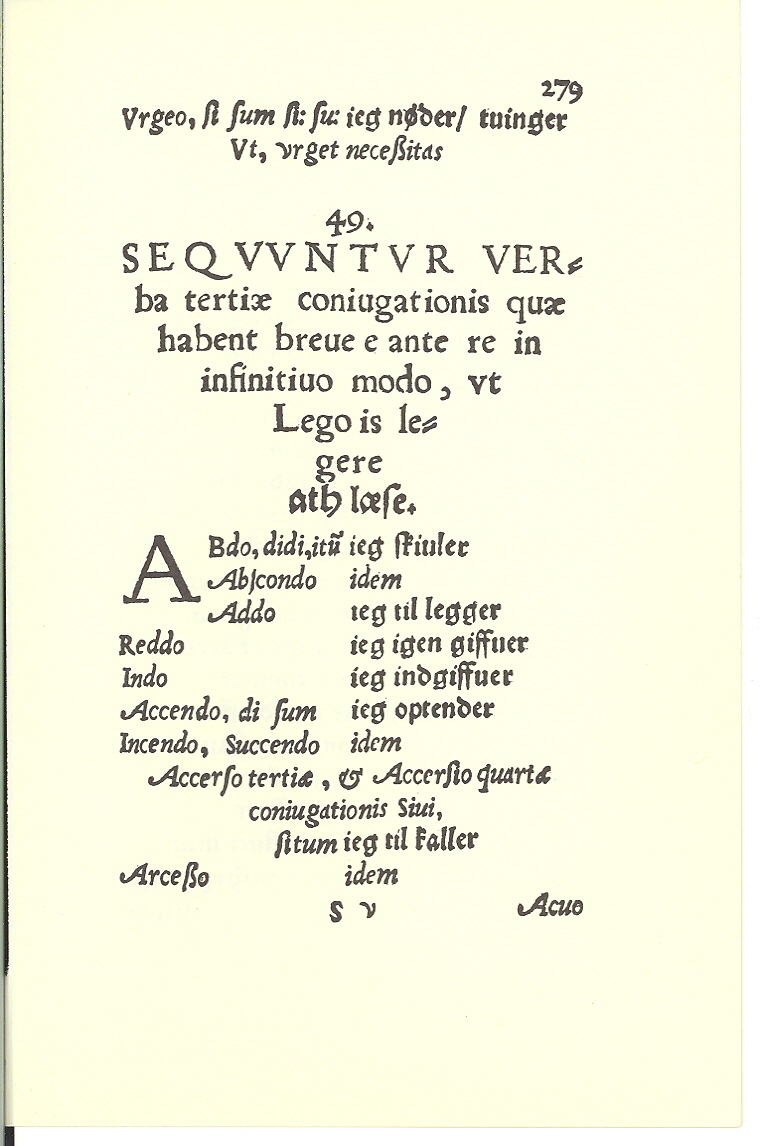 279
Vrgeo, ſi ſum ſi: ſu: ieg nøder/ tuinger
Vt, vrget neceßitas
49.
SEQVVNTVR VER⸗
ba tertiæ coniugationis quæ
habent breue e ante re in
infinitiuo modo, vt
Lego is le⸗
gere
ath læſe.
ABdo, didi, itū ieg ſkiuler
Abſcondo idem
Addo ieg til legger
Reddo ieg igen giffuer
Indo ieg indgiffuer
Accendo, di ſum ieg optender
Incendo, Succendo idem
Accerſo tertiæ, & Accerſio quartæ
coniugationis Siui,
ſitum ieg til kaller
Arceßo idem
S v Acuo